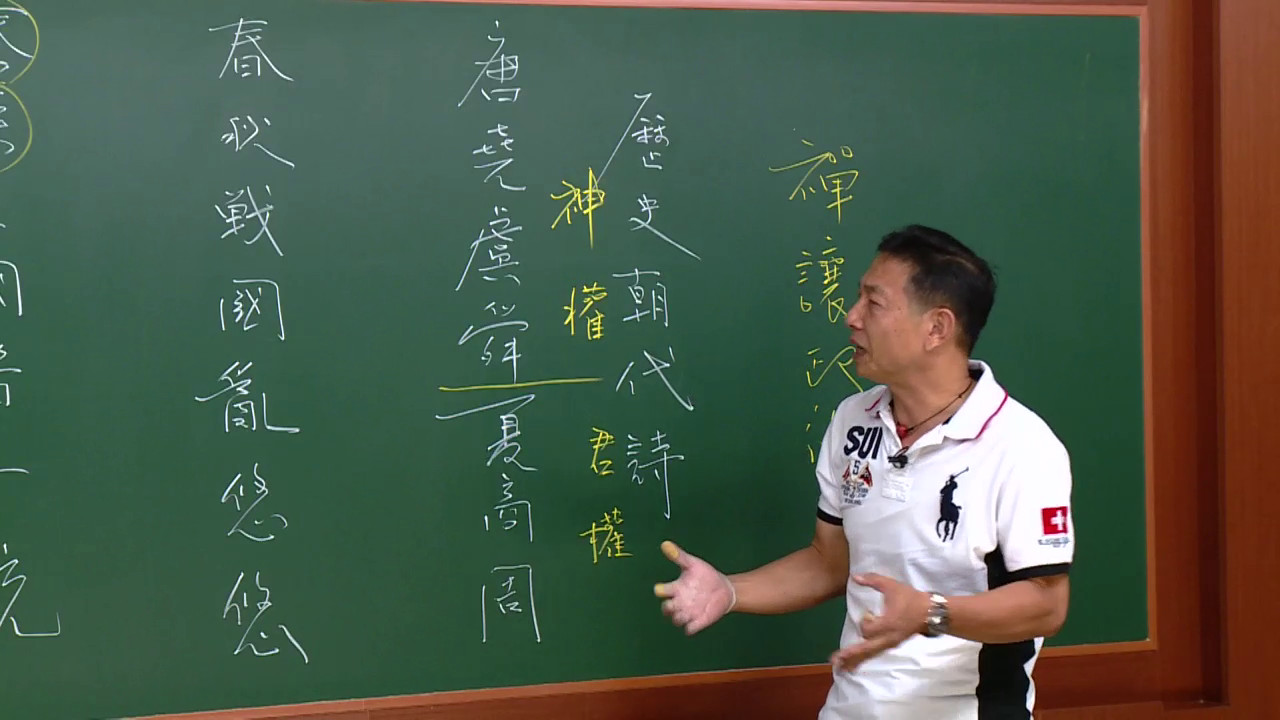 禪讓政
歷史朝代詩
神權
君權
唐堯虞舜夏商周
春秋戦國亂悠悠
SUI
5